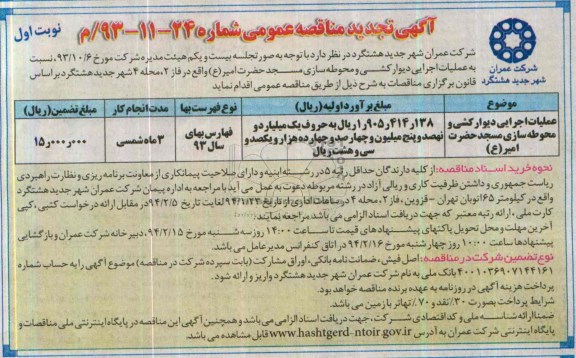 آگهی تجدید مناقصه عمومی شماره ۲۴-۱۱-۹۳/م
نوبت اول
شرکت عمران
شهر جدید هشتگرد
شرکت عمران شهر جدید هشتگرد در نظر دارد با توجه به صورتجلسه بیست و یکم هیئت مدیره شرکت مورخ ۹۳/۱۰/۶، نسبت
به عملیات اجرایی دیوارکشی و محوطه سازی مسجد حضرت امیر(ع) واقع در فاز ۲، محله ۴ شهر جدید هشتگرد بر اساس
قانون برگزاری مناقصات به شرح ذیل از طریق مناقصه عمومی اقدام نماید
موضوع
مبلغ برآورد اولیه (ریال)
نوع فهرست بها
مدت انجام کار
مبلغ تضمین (ریال)
عملیات اجرایی دیوارکشی و
محوطه سازی مسجد حضرت
امیر(ع)
۱٫۹۰۵٫۴۱۴٫۱۳۸ ریال به حروف یک میلیارد و
نهصد و پنج میلیون و چهارصد و چهارده هزار و یکصد و
سی و هشت ریال
فهارس بهای
سال ۹۳
۳ ماه شمسی
۱۵٫۰۰۰٫۰۰۰
نحوه خرید اسناد مناقصه: از کلیه دارندگان حداقل رتبه ۵ در رشته ابنیه و دارای صلاحیت پیمانکاری از معاونت برنامه ریزی و نظارت راهبردی
ریاست جمهوری و داشتن ظرفیت کاری و ریالی آزاد در رشته مربوطه دعوت به عمل می آید با مراجعه به اداره پیمان شرکت عمران شهر جدید هشتگرد
واقع در کیلومتر ۶۵ اتوبان تهران - قزوین، فاز ۲، محله ۴ در ساعات اداری از تاریخ لغایت تاریخ ۹۴/۲/۵ در مقابل ارائه درخواست کتبی، کپی
کارت ملی، ارائه رتبه معتبر که جهت دریافت اسناد الزامی می باشد مراجعه نمایند.
آخرین مهلت و محل تحویل پاکتهای پیشنهادهای قیمت تا ساعت ۱۴:۰۰ روز سه شنبه مورخ ۹۴/۲/۱۵، دبیرخانه شرکت عمران و بازگشایی
پیشنهادها ساعت ۱۰:۰۰ روز چهارشنبه مورخ ۹۴/۲/۱۶ در اتاق کنفرانس مدیرعامل می باشد.
نوع تضمین شرکت در مناقصه: اصل فیش، ضمانت نامه بانکی، اوراق مشارکت (بابت سپرده شرکت در مناقصه) موضوع آگهی را به حساب شماره
۴۰۰۱۰۳۶۹۰۷۱۴۴۱۶۱ بانک ملی به نام شرکت عمران شهر جدید هشتگرد واریز و ارائه شود.
پرداخت هزینه آگهی در روزنامه به عهده برنده مناقصه خواهد بود.
شرایط پرداخت بصورت ۳۰٪ نقد و ۷۰٪ تهاتر با زمین می باشد.
ضمناً ارائه شناسه ملی و کد اقتصادی شرکت، جهت دریافت اسناد الزامی می باشد و همچنین آگهی این مناقصه در پایگاه اینترنتی ملی مناقصات و
پایگاه اینترنتی شرکت عمران به آدرس www.hashtgerd-ntoir.gov.ir قابل مشاهده می باشد.